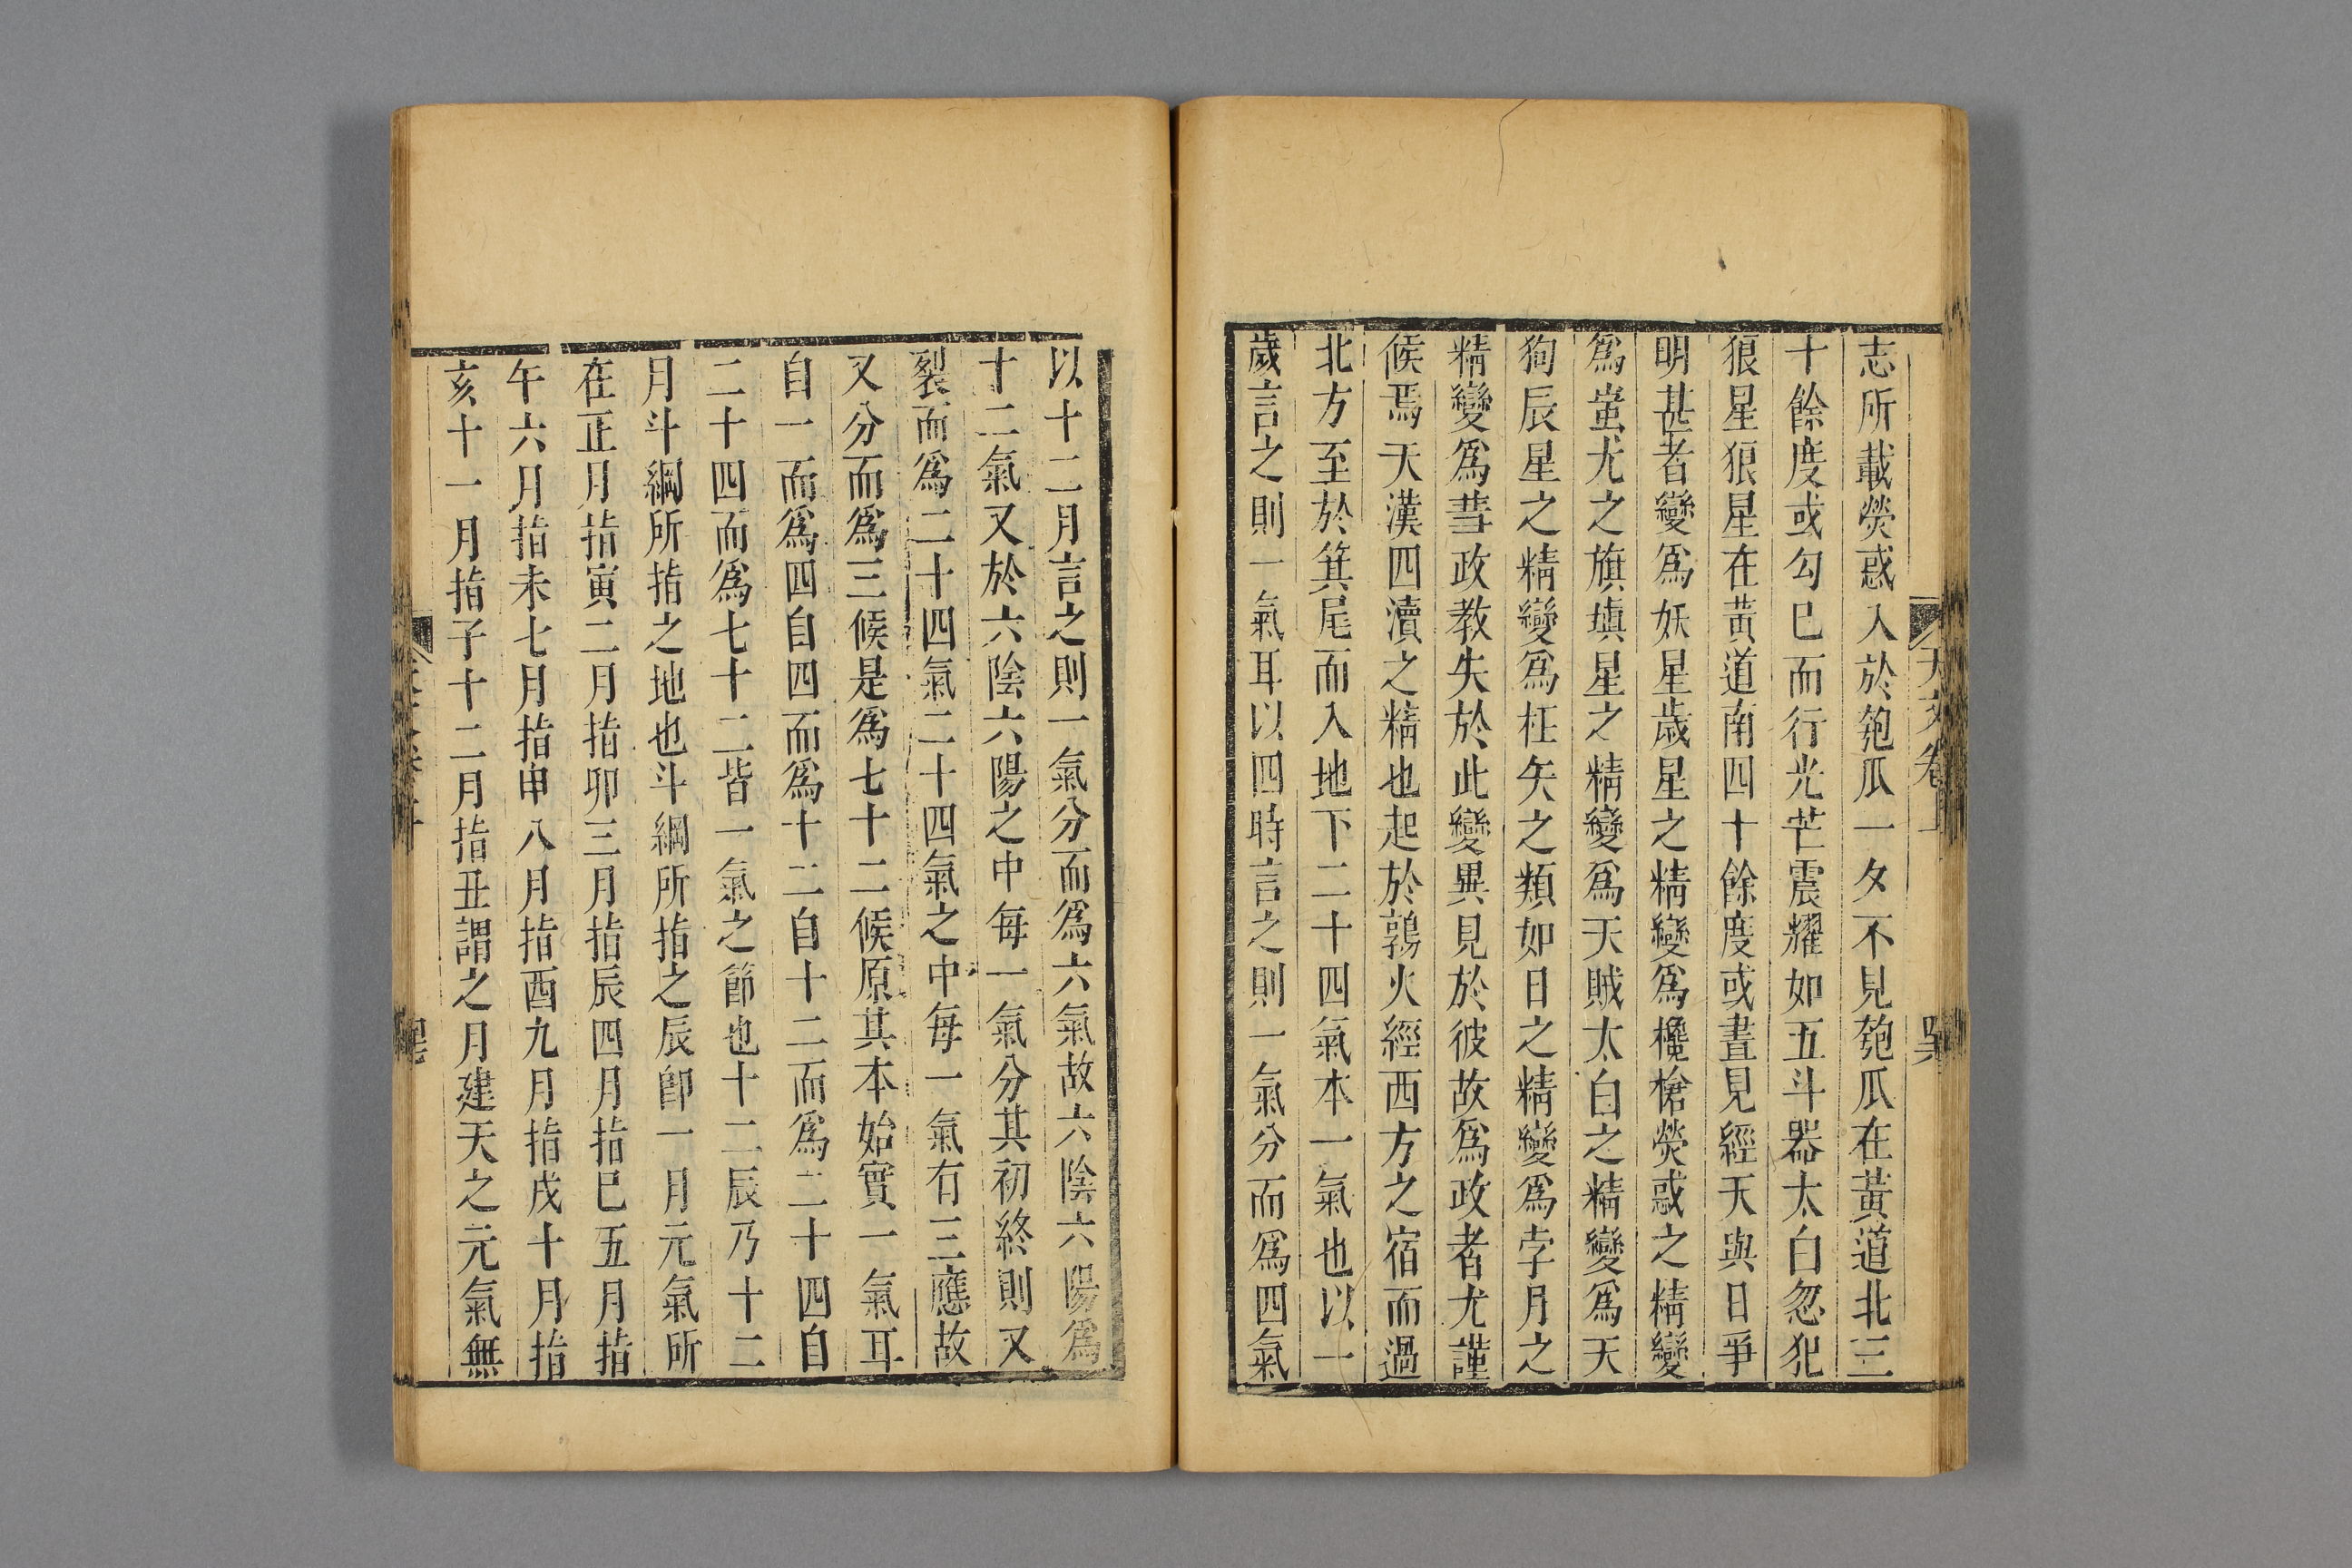 天文卷一
志所載熒惑入於匏瓜一夕不見匏瓜在黃道北三
十餘度或勾巳而行光芒震耀如五斗器太白忽犯
狼星狼星在黃道南四十餘度或晝見經天與日爭
明甚者變爲妖星歲星之精變爲欃槍熒惑之精變
爲蚩尤之旗塡星之精變爲天賊太白之精變爲天
狗辰星之精變爲枉矢之類如日之精變爲孛月之
精變爲彗政教失於此變異見於彼故爲政者尤謹
候焉天漢四瀆之精也起於鶉火經西方之宿而過
北方至於箕尾而入地下二十四氣本一氣也以一
歲言之則一氣耳以四時言之則一氣分而爲四氣
以十二月言之則一氣分而爲六氣故六陰六陽爲
十二氣又於六陰六陽之中每一氣分其初終則又
裂而爲二十四氣二十四氣之中每一氣有三應故
又分而爲三候是爲七十二候原其本始實一氣耳
自一而爲四自四而爲十二自十二而爲二十四自
二十四而爲七十二皆一氣之節也十二辰乃十二
月斗綱所指之地也斗綱所指之辰卽一月元氣所
在正月指寅二月指卯三月指辰四月指巳五月指
午六月指未七月指申八月指酉九月指戌十月指
亥十一月指子十二月指丑謂之月建天之元氣無